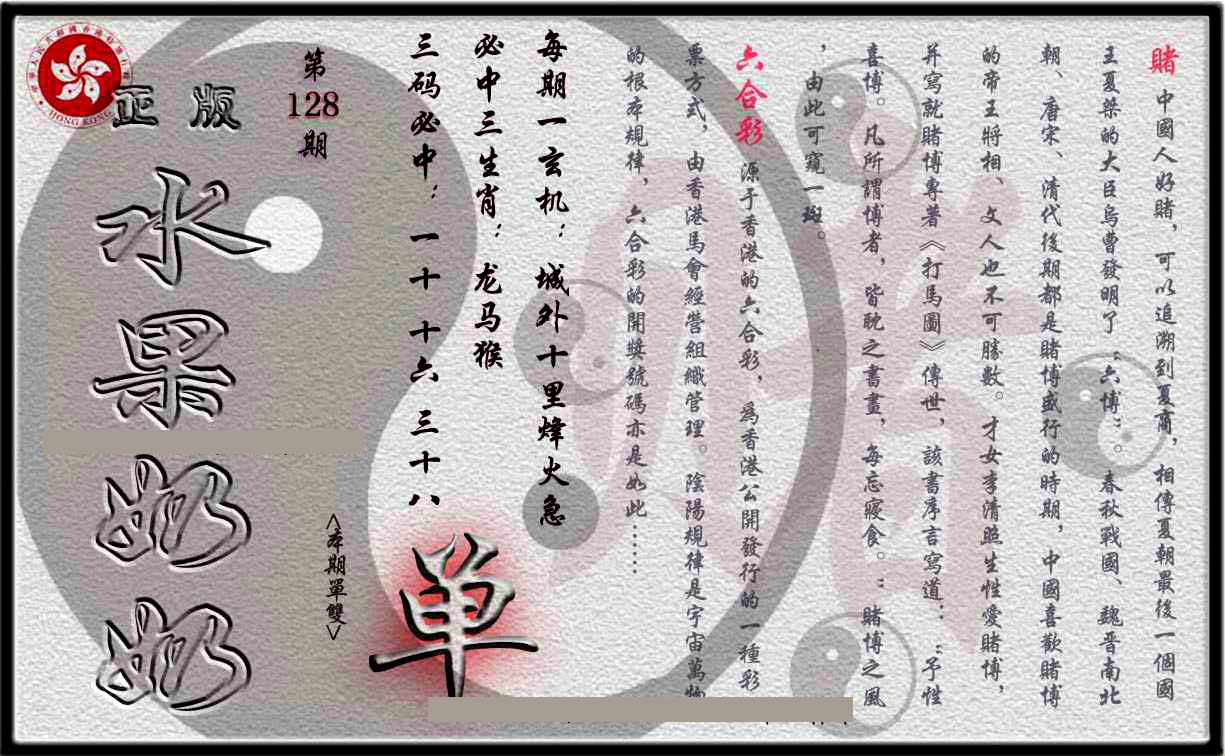 賭 中國人好賭，可以追溯到夏商，相傳夏朝最後一個國
王夏桀的大臣烏曹發明了“六博”。春秋戰國、魏晋南北
朝、唐宋、清代後期都是賭博盛行的時期，中國喜歡賭博
的帝王將相、文人也不可勝數。才女李清照生性愛賭博，
并寫就賭博專著《打馬圖》傳世，該書序言寫道：“予性
喜博。凡所謂博者，皆耽之書畫，每忘寢食。”賭博之風
，由此可窺一斑。
六合彩 源于香港的六合彩，爲香港公開發行的一種彩
票方式，由香港馬會經營組織管理。陰陽規律是宇宙萬物
的根本規律，六合彩的開獎號碼亦是如此……
每期一玄机：城外十里烽火急
必中三生肖：龙马猴
三码必中：一十 十六 三十八
单
<本期單雙>
第
128
期
正版
水果奶奶
HONG KONG